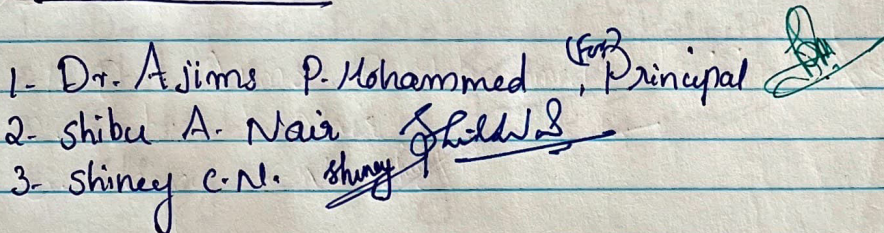 1- Dr. Ajims P. Mohammed (For), Principal
2- Shibu A. Nair
3- Shiney C.N. Shiney